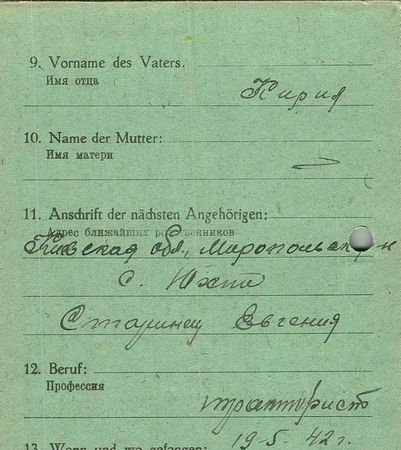 9. Vorname des Vaters.
Имя отца
Кирил
10. Name der Mutter:
Имя матери
11. Anschrift der nächsten Angehörigen:
Адрес ближайших родственников
Киевская обл., Миропольский р-н
с. Юхти
Старинец Евгения
12. Beruf:
Профессия
тракторист
13. Wann und wo gefangen:
19-5-42 г.